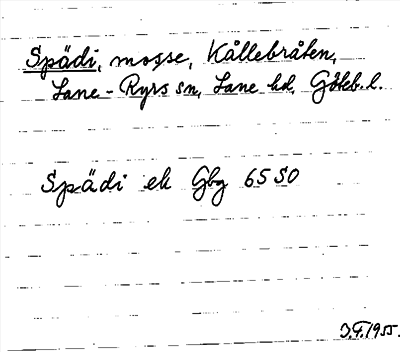 Spädi, mosse, Kållebråten,
Lane-Ryrs sn, Lane hd, Göteb. l.
Spädi ek Gbg 65 SO
1955.